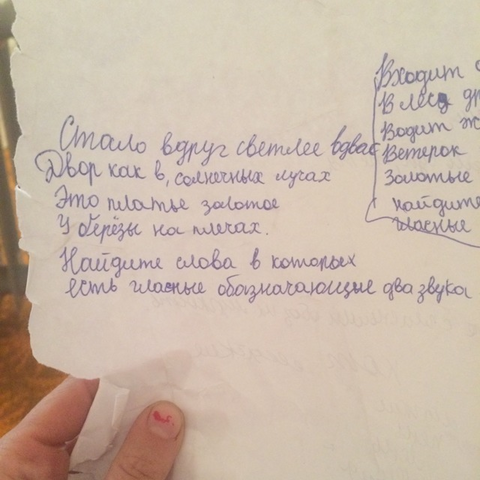 Стало вдруг светлее вдвае
Двор как в, солнечных лучах
Это платье золотое
У берёзы на плечах.
Найдите слова в которых
есть гласные обозначающие два звука
Входит
В лес
Водит
Ветерок
Золотые
найдите
гласные